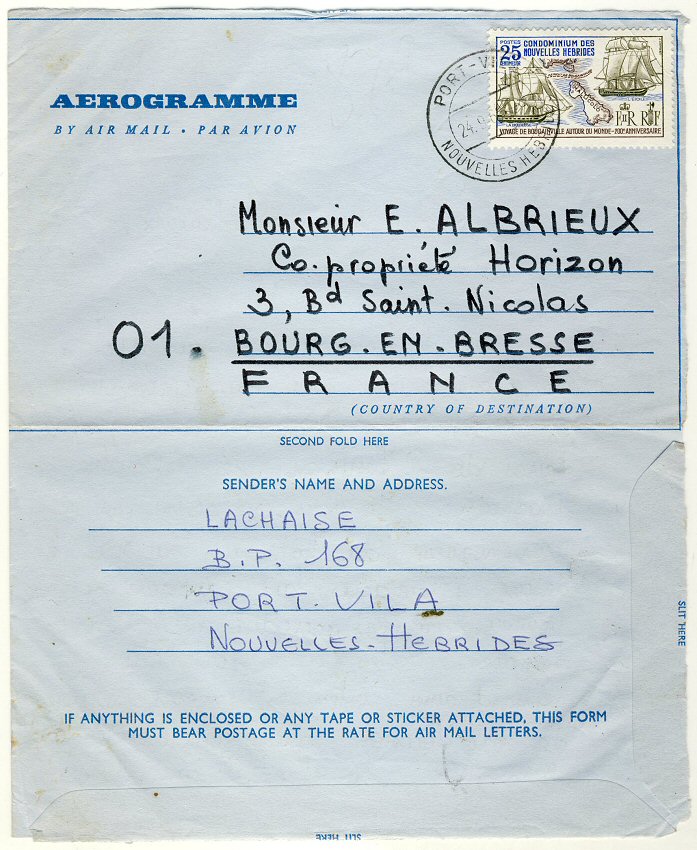 AEROGRAMME
BY AIR MAIL • PAR AVION
POSTES 25 CONDOMINIUM DES
NOUVELLES HEBRIDES
EIIR RF
VOYAGE DE BOUGAINVILLE AUTOUR DU MONDE - 200e ANNIVERSAIRE
PORT-VI
24
NOUVELLES HEB
Monsieur E. ALBRIEUX
Co.propriété Horizon
3, Bd Saint. Nicolas
01. BOURG-EN-BRESSE
FRANCE
(COUNTRY OF DESTINATION)
SECOND FOLD HERE
SENDER'S NAME AND ADDRESS.
LACHAISE
B.P. 168
PORT. VILA
NOUVELLES-HEBRIDES
SLIT HERE
IF ANYTHING IS ENCLOSED OR ANY TAPE OR STICKER ATTACHED, THIS FORM
MUST BEAR POSTAGE AT THE RATE FOR AIR MAIL LETTERS.
SLIT HERE